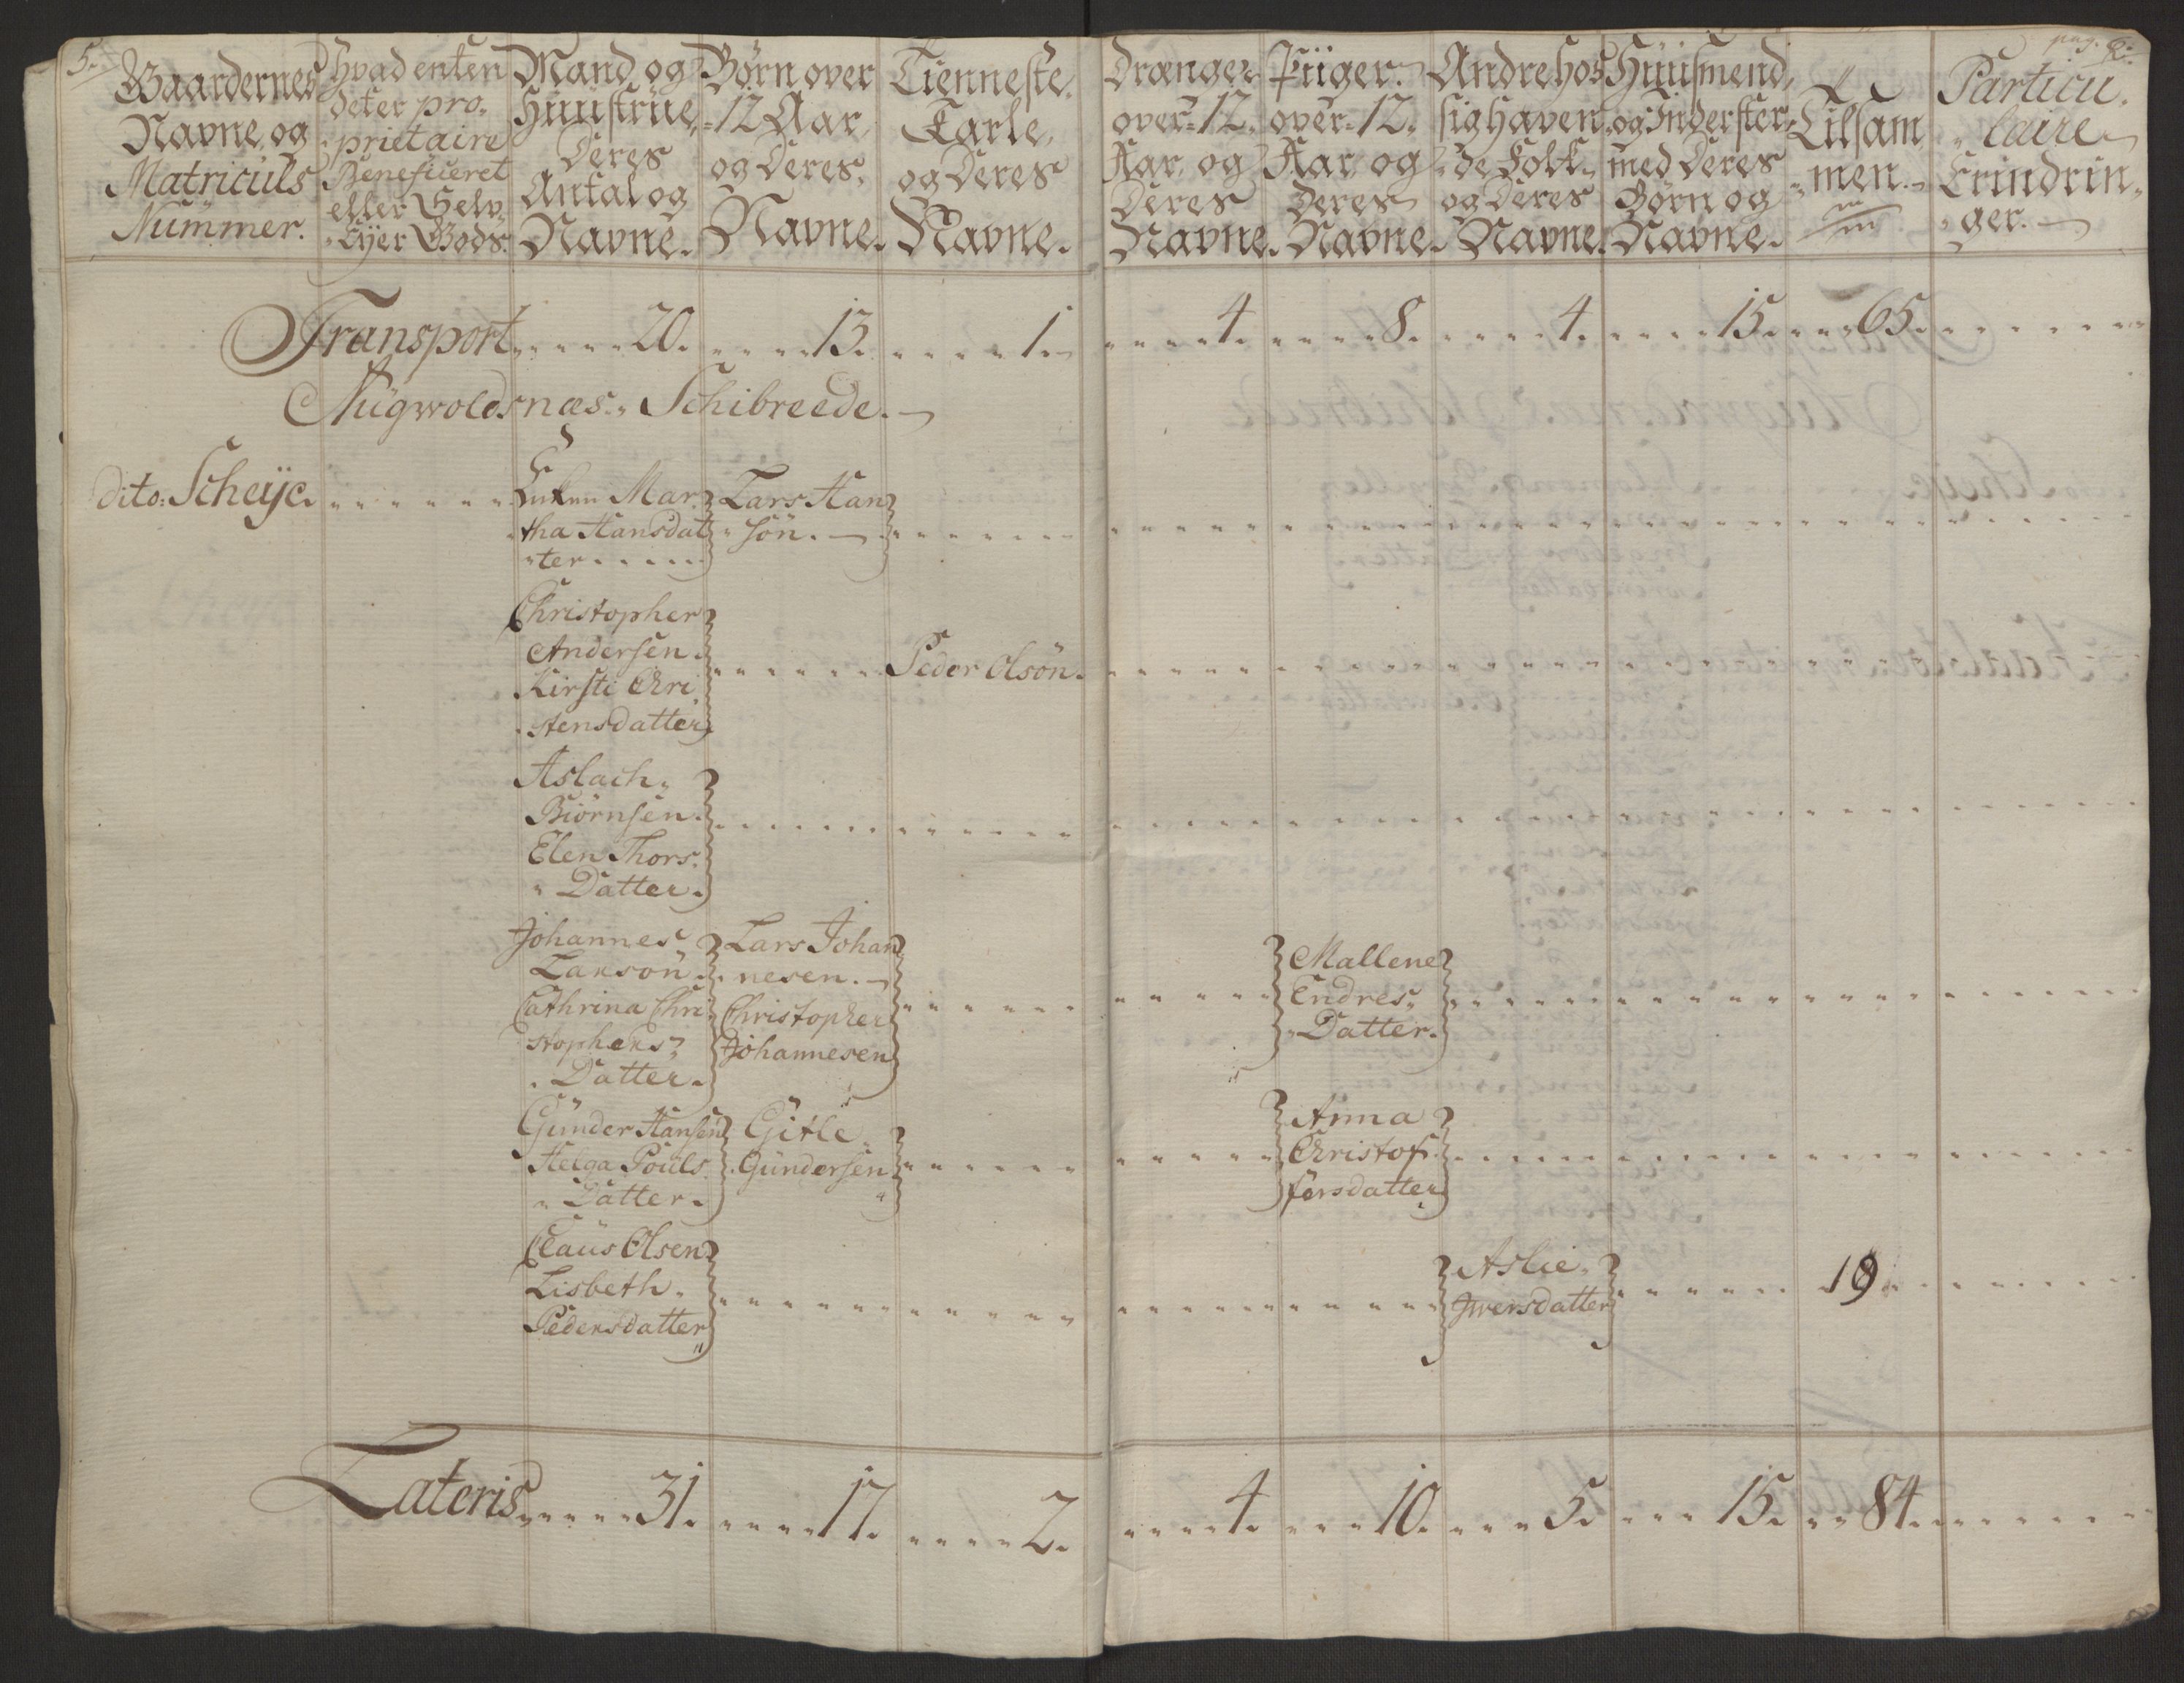 5.
pag. 6.
Gaardernes
Navne, og
Matriculs
Nummer.
Hvad enten
det er pro-
prietaire
Beneficeret
eller Selv-
Eyer Gods.
Mand og
Huustrue,
Deres
Antal og
Navne.
Børn over
12 Aar,
og Deres
Navne.
Tienneste
Karle,
og Deres
Navne.
Drænge
over 12
Aar, og
Deres
Navne.
Piiger
over 12
Aar, og
Deres
Navne.
Andre hos
sig haven-
de Folk
og Deres
Navne.
Huusmend
og Inderster
med Deres
Børn og
Navne.
Tilsam
men.
Particu-
laire
Erindrin-
ger.
Transport 20. 13. 1. 4. 8. 4. 15. 65.
Augwoldsnæs Schibreede.
dito: Scheije.
Enken Mar-
tha Hansdat
ter
Lars Han
søn.
Christopher
Andersen.
Kirsti Chri
stensdatter
Peder Olsön.
Aslach
Biörnsen.
Elen Thors.
Datter.
Johannes
Larsön.
Cathrina Chri
stophers
Datter.
Lars Johan
nesen.
Christopher
Johannesen
Mallene
Endres
Datter.
Gunder Hansen
Helga Pouls
Datter.
Gitle
Gundersen
Anna
Christof
fersdatter
Claus Olsen
Lisbeth
Pedersdatter
Aslie
Iwersdatter
19
Lateris 31. 17. 2. 4. 10. 5. 15. 84.